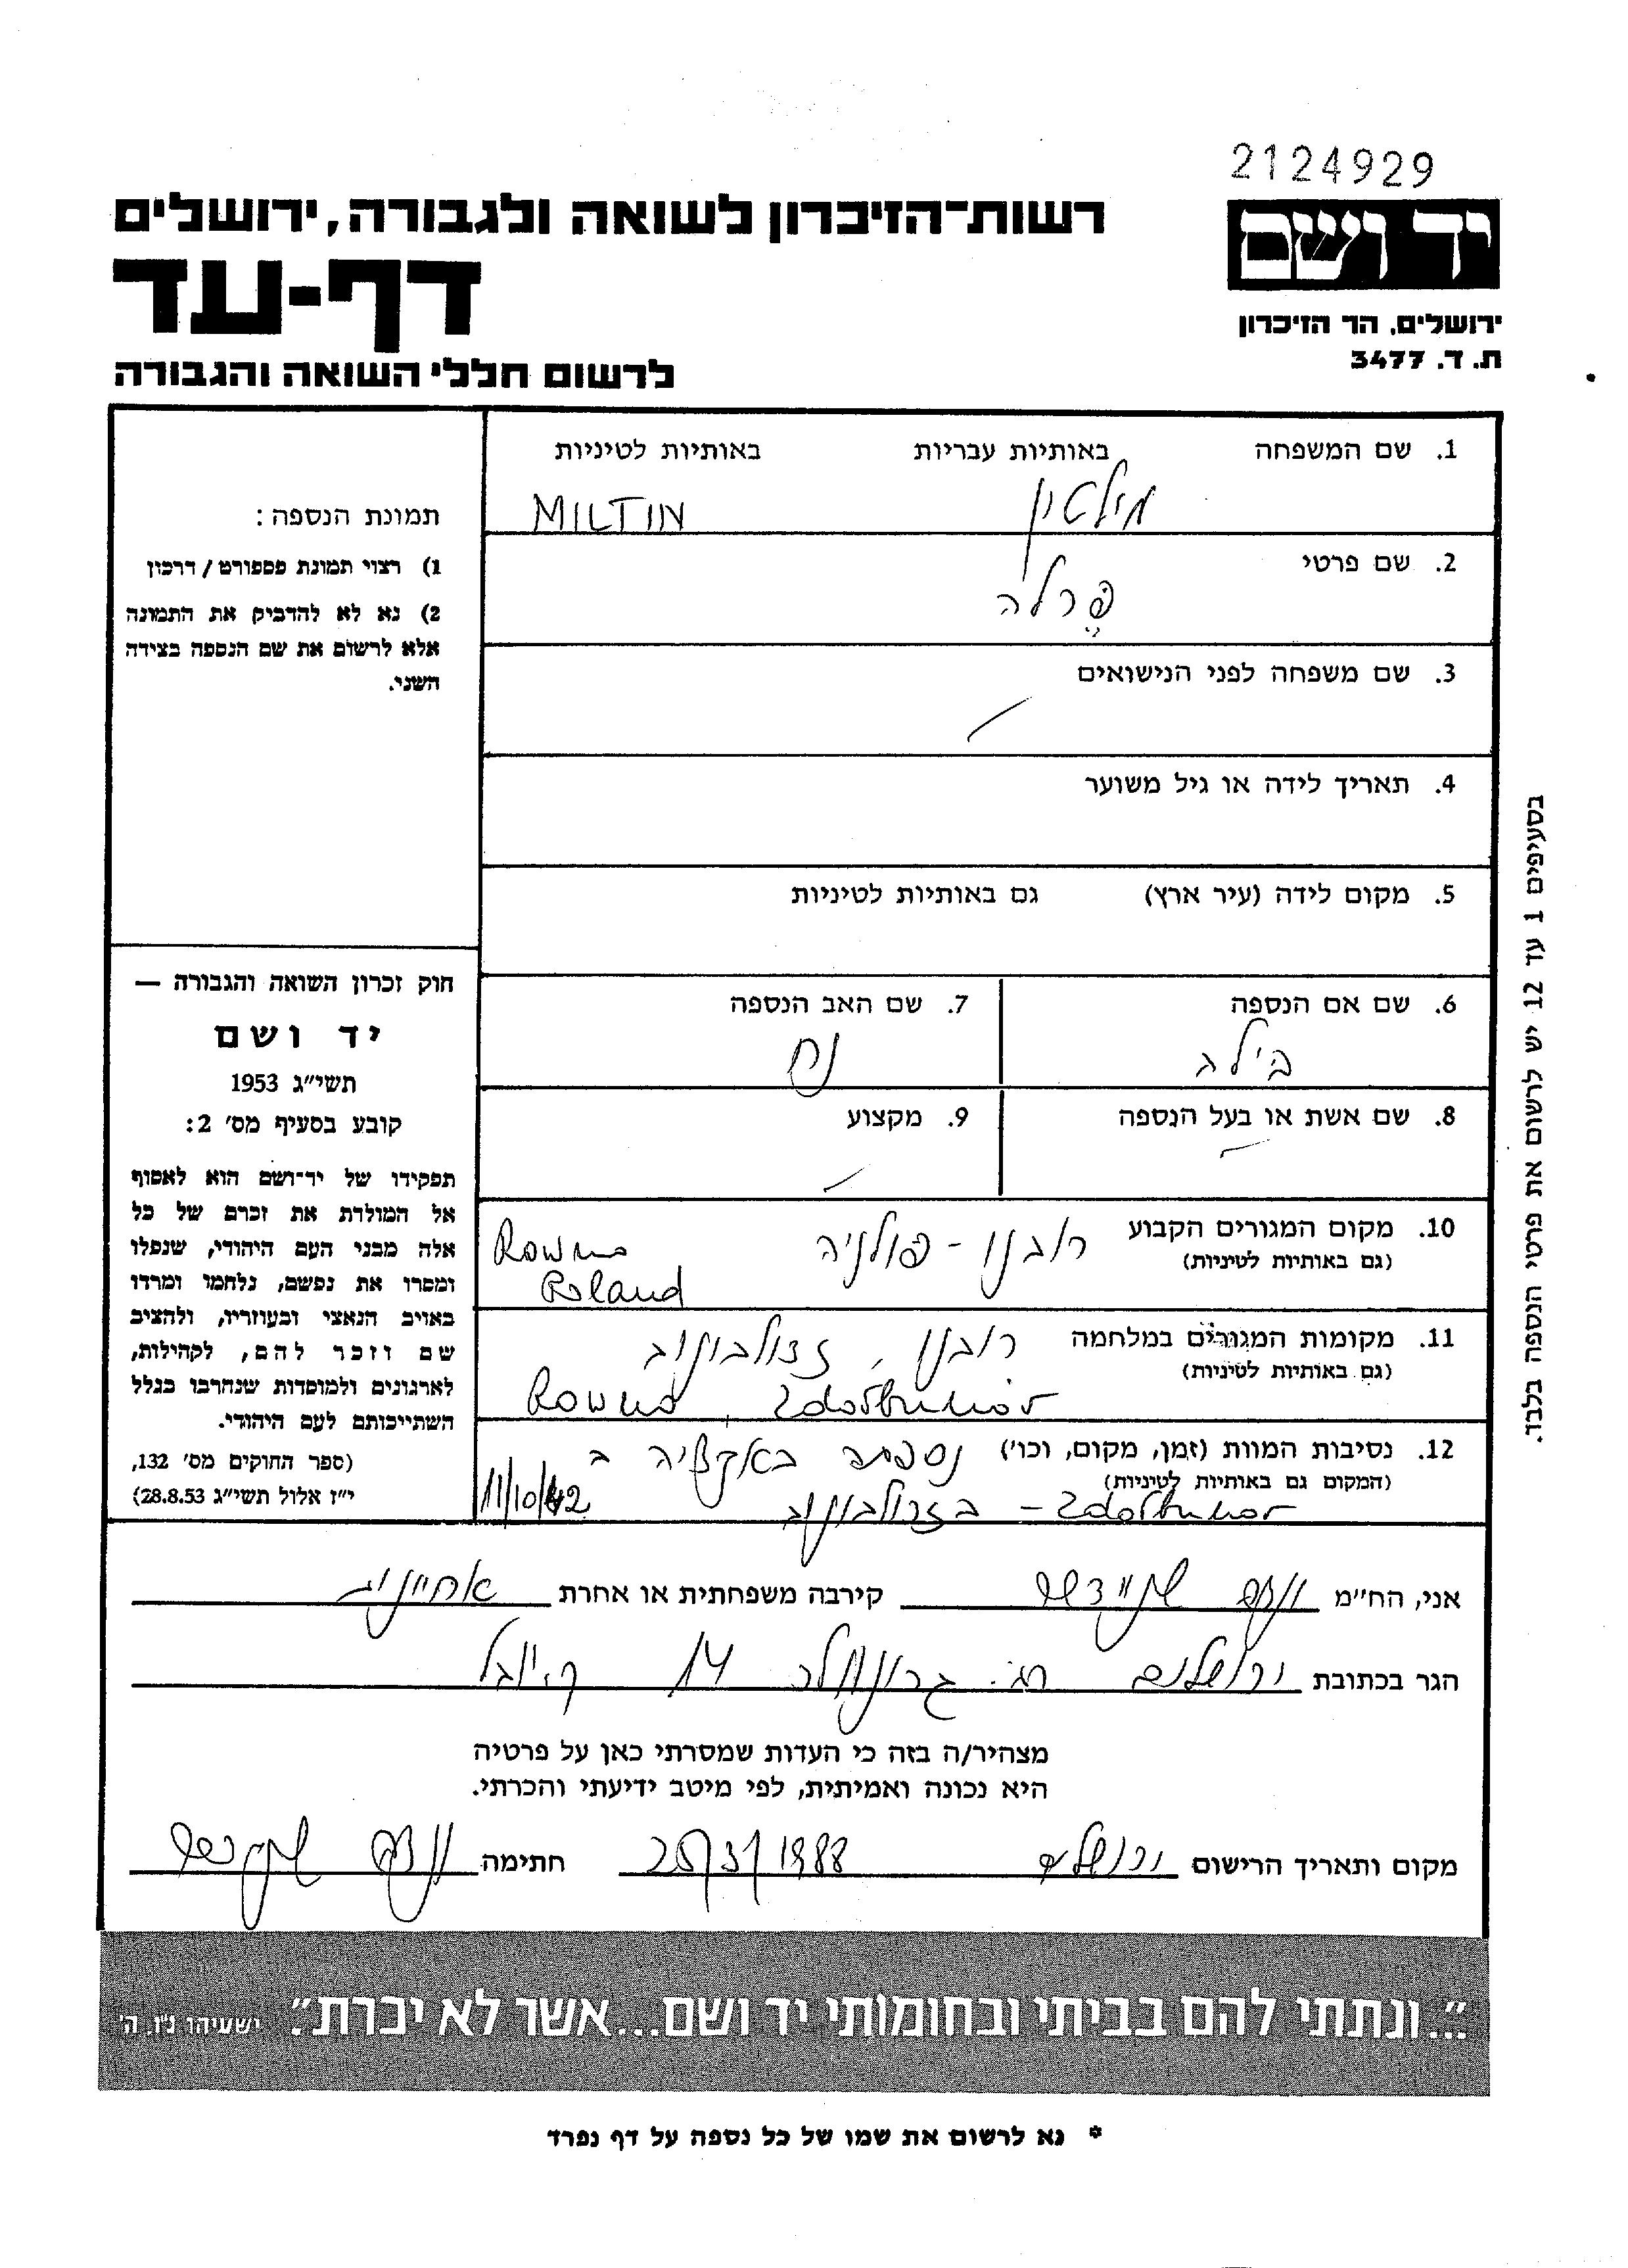 2124929
יד ושם
ירושלים. הר הזיכרון
ת. ד. 3477
רשות־הזיכרון לשואה ולגבורה, ירושלים
דף-עד
לרשום חללי השואה והגבורה
1. שם המשפחה באותיות עבריות באותיות לטיניות
מילטין MILTIN
2. שם פרטי
פרלה
3. שם משפחה לפני הנישואים
4. תאריך לידה או גיל משוער
5. מקום לידה (עיר ארץ) גם באותיות לטיניות
6. שם אם הנספה 7. שם האב הנספה
ביילה נח
8. שם אשת או בעל הנספה 9. מקצוע
10. מקום המגורים הקבוע רובנו - פולניה Rowno
(גם באותיות לטיניות) Poland
11. מקומות המגורים במלחמה רובנו, זדולבונוב
(גם באותיות לטיניות) Rowno, Zdołbunów
12. נסיבות המוות (זמן, מקום, וכו') נספתה באקציה ב
(המקום גם באותיות לטיניות) 11/10/42
בזדולבונוב - Zdołbunów
תמונת הנספה:
1) רצוי תמונת פספורט / דרכון
2) נא לא להדביק את התמונה
אלא לרשום את שם הנספה בצידה
השני.
חוק זכרון השואה והגבורה —
יד ושם
תשי״ג 1953
קובע בסעיף מס׳ 2:
תפקידו של יד־ושם הוא לאסוף
אל המולדת את זכרם של כל
אלה מבני העם היהודי, שנפלו
ומסרו את נפשם, נלחמו ומרדו
באויב הנאצי ובעוזריו, ולהציב
שם וזכר להם, לקהילות,
לארגונים ולמוסדות שנחרבו בגלל
השתייכותם לעם היהודי.
(ספר החוקים מס׳ 132,
י״ז אלול תשי״ג 28.8.53)
בסעיפים 1 עד 12 יש לרשום את פרטי הנספה בלבד.
אני, הח״מ שניידר קירבה משפחתית או אחרת אחיינית
הגר בכתובת ירושלים רח. 14 ק. יובל
מצהיר/ה בזה כי העדות שמסרתי כאן על פרטיה
היא נכונה ואמיתית, לפי מיטב ידיעתי והכרתי.
מקום ותאריך הרישום ירושלים 25/3/1988 חתימה
״...ונתתי להם בביתי ובחומותי יד ושם...אשר לא יכרת״. ישעיהו נ״ו, ה׳
* נא לרשום את שמו של כל נספה על דף נפרד